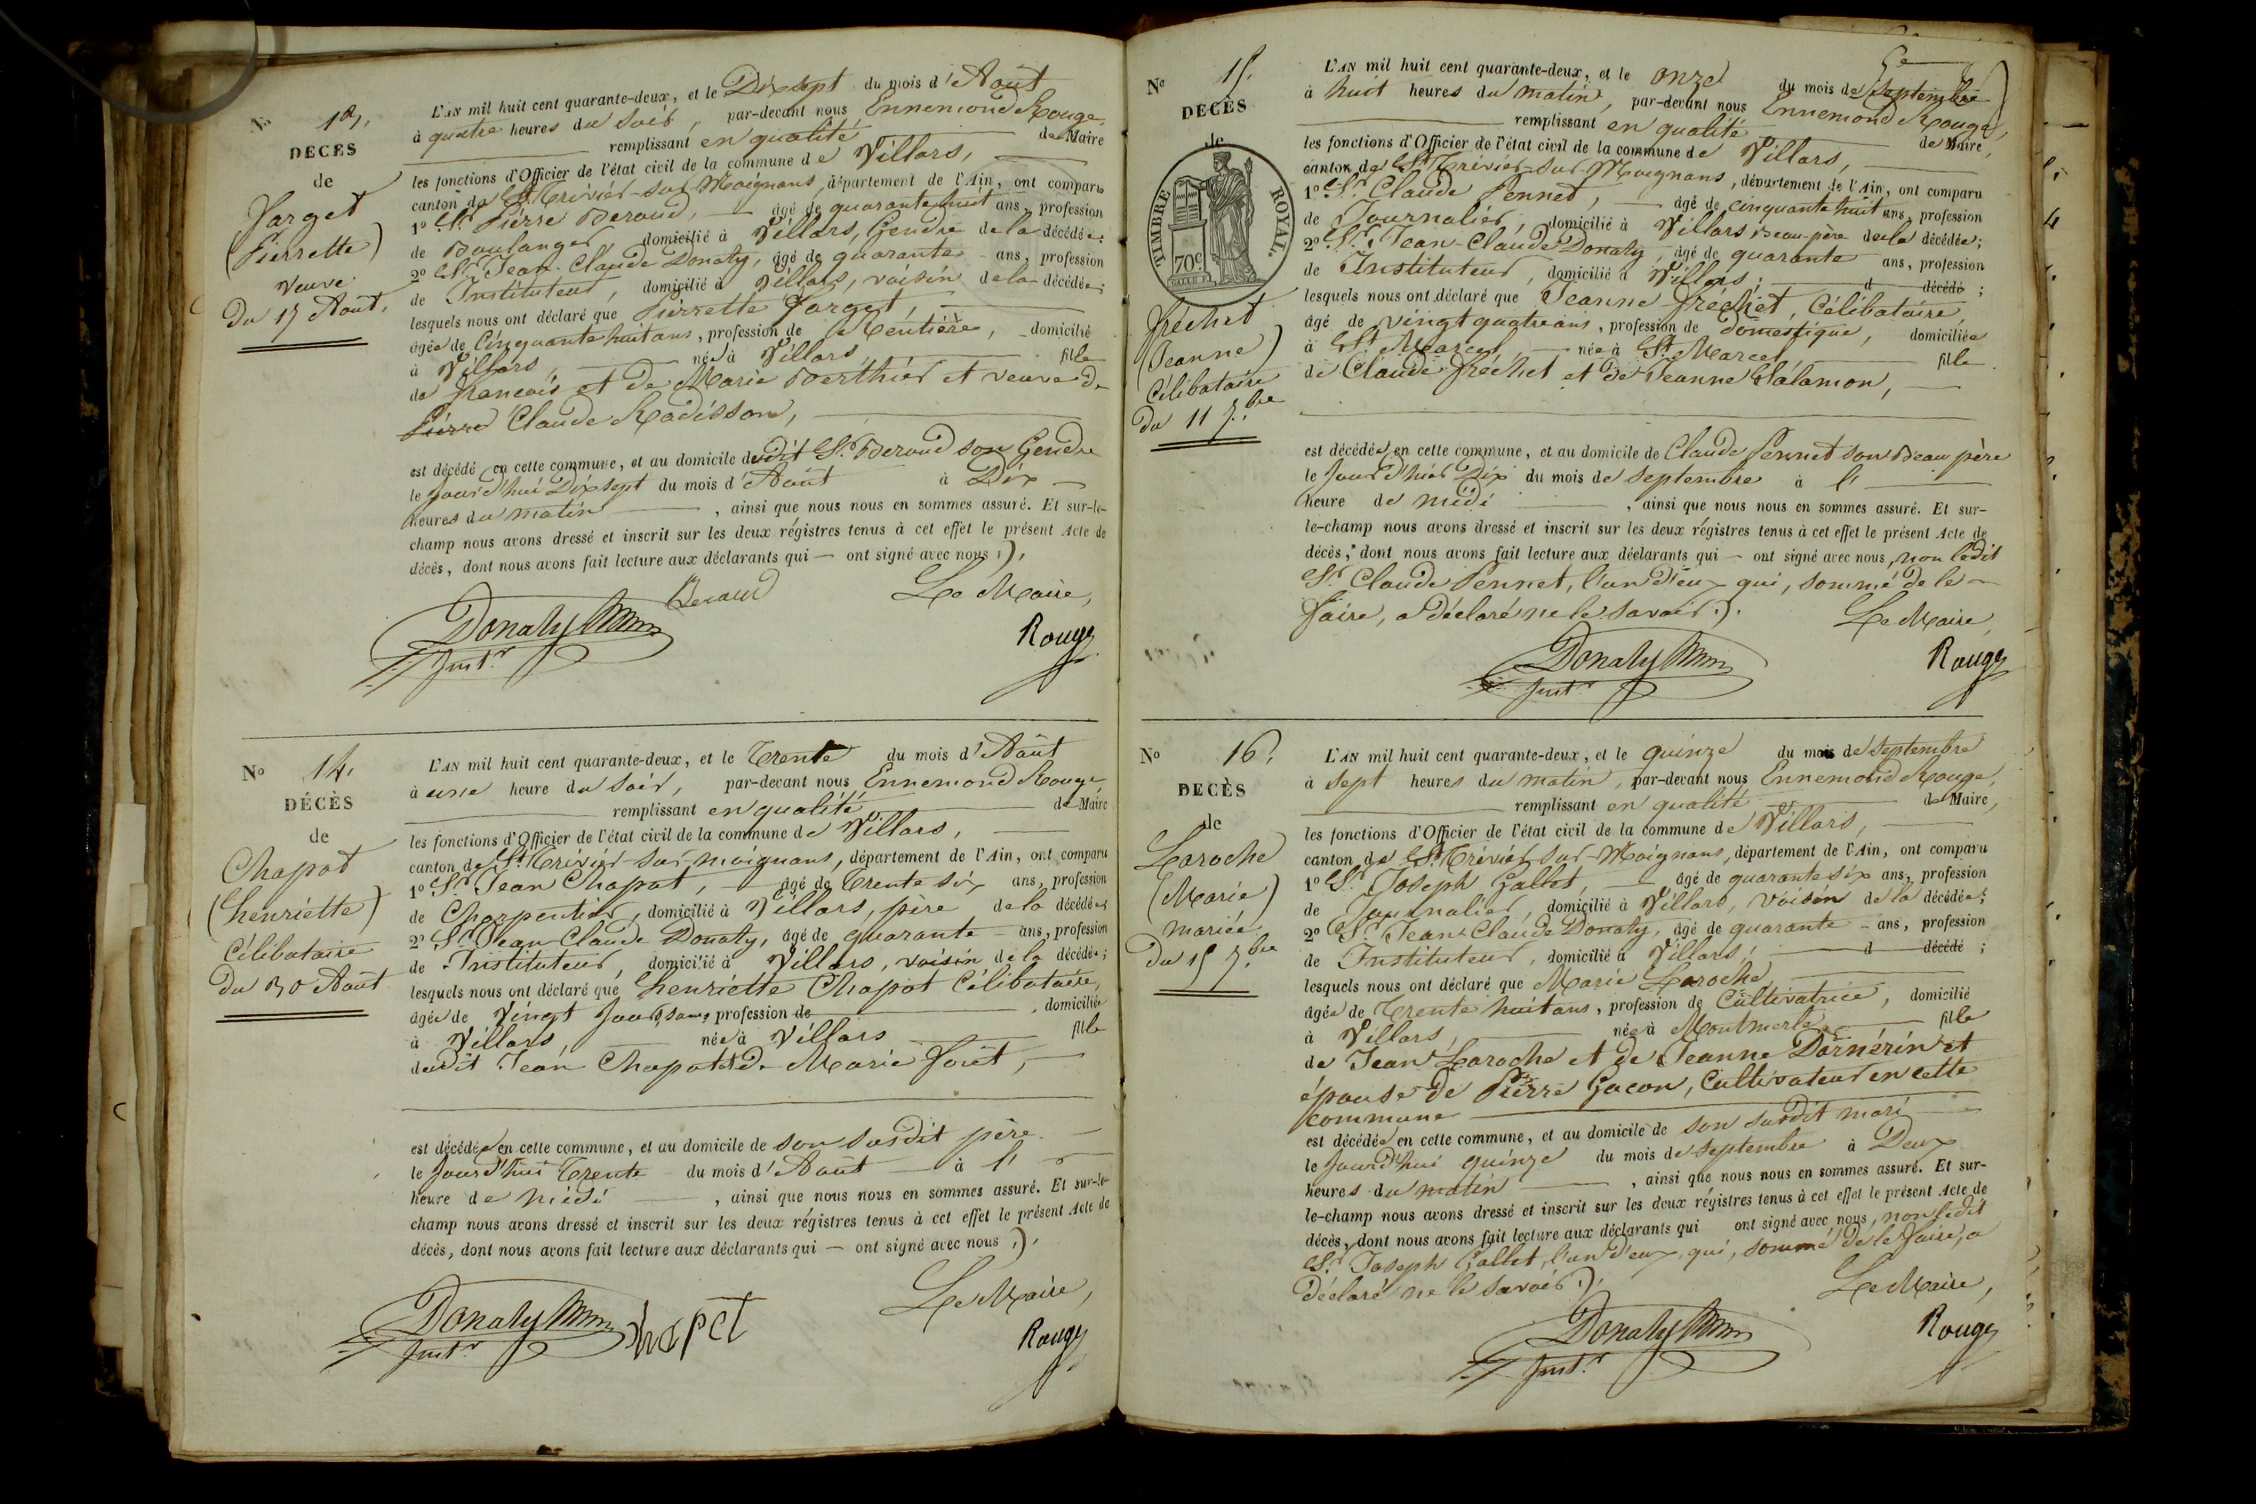 No 13.
DECES
de
Jarget
(Pierrette)
veuve
Du 17 Août.
L'AN mil huit cent quarante-deux, et le Dixsept du mois d'Août
à quatre heures du soir, par-devant nous Ennemond Rouge,
remplissant en qualité de Maire
les fonctions d'Officier de l'état civil de la commune de Villars,
canton de St Trivier-sur-Moignans, département de l'Ain, ont comparu
1º Sr Pierre Beraud, âgé de quarante huit ans, profession
de Boulanger domicilié à Villars, Gendre de la décédée;
2º Sr Jean-Claude Donaty, âgé de quarante ans, profession
de Instituteur, domicilié à Villars, voisin de la décédée;
lesquels nous ont déclaré que Pierrette Jarget,
âgée de Cinquante huit ans, profession de Rentière, domicilié
à Villars, née à Villars fille
de francois et de Marie Berthier et veuve de
Pierre Claude Radisson,
est décédé en cette commune, et au domicile dudit Sr Beraud son Gendre
le jourd'hui Dixsept du mois d'Août à Dix
heures du matin, ainsi que nous nous en sommes assuré. Et sur-le-
champ nous avons dressé et inscrit sur les deux régistres tenus à cet effet le présent Acte de
décès, dont nous avons fait lecture aux déclarants qui — ont signé avec nous.
Beraud Le Maire,
Donaty Rouge
Instr
No 14.
DÉCÈS
de
Chapot
(henriette)
Célibataire
Du 30 Août
L'AN mil huit cent quarante-deux, et le Trente du mois d'Août
à une heure du soir, par-devant nous Ennemond Rouge
remplissant en qualité de Maire
les fonctions d'Officier de l'état civil de la commune de Villars,
canton de St Trivier-sur-moignans, département de l'Ain, ont comparu
1º Sr Jean Chapot, âgé de Trente six ans, profession
de Charpentier, domicilié à Villars, père de la décédée;
2º Sr Jean Claude Donaty, âgé de quarante ans, profession
de Instituteur, domicilié à Villars, voisin de la décédée;
lesquels nous ont déclaré que henriette Chapot Célibataire,
âgée de Vingt Jours ans, profession de domiciliée
à Villars, née à Villars fille
dudit Jean Chapot et de Marie foret,
est décédée en cette commune, et au domicile de son susdit père
le jourd'hui Trente du mois d'Août à l'
heure de Midi, ainsi que nous nous en sommes assuré. Et sur-le-
champ nous avons dressé et inscrit sur les deux régistres tenus à cet effet le présent Acte de
décès, dont nous avons fait lecture aux déclarants qui — ont signé avec nous.
Le Maire,
Donaty Chapot Rouge
Instr
No 15.
DÉCÈS
de
TIMBRE ROYAL.
70c
fréchet
(Jeanne)
Célibataire
Du 11 7bre
L'AN mil huit cent quarante-deux, et le onze du mois de Septembre
à huit heures du matin, par-devant nous Ennemond Rouge,
remplissant en qualité de Maire,
les fonctions d'Officier de l'état civil de la commune de Villars,
canton de St Trivier-sur-Moignans, département de l'Ain, ont comparu
1º Sr Claude Pennet, âgé de cinquante huit ans, profession
de Journalier, domicilié à Villars Beau-père de la décédée;
2º Sr Jean-Claude Donaty, âgé de quarante ans, profession
de Instituteur, domicilié à Villars; d décédé;
lesquels nous ont déclaré que Jeanne fréchet, Célibataire,
âgé de vingt quatre ans, profession de Domestique, domiciliée
à St Marcel, née à St Marcel, fille
de Claude fréchet et de Jeanne Salamon,
est décédée en cette commune, et au domicile de Claude Pennet son Beau père
le jour d'hier Dix du mois de septembre à l'
heure de midi, ainsi que nous nous en sommes assuré. Et sur-
le-champ nous avons dressé et inscrit sur les deux régistres tenus à cet effet le présent Acte de
décès, dont nous avons fait lecture aux déclarants qui — ont signé avec nous, non ledit
Sr Claude Pennet, l'un d'eux qui, sommé de le
faire, a déclaré ne le savoir.
Le Maire,
Donaty Rouge
Instr
No 16.
DECÈS
de
Laroche
(Marie)
mariée
Du 15 7bre
L'AN mil huit cent quarante-deux, et le quinze du mois de septembre
à sept heures du matin, par-devant nous Ennemond Rouge,
remplissant en qualité de Maire,
les fonctions d'Officier de l'état civil de la commune de Villars,
canton de St Trivier-sur-Moignans, département de l'Ain, ont comparu
1º Sr Joseph Gallet, âgé de quarante six ans, profession
de Journalier, domicilié à Villars, Voisin de la décédée;
2º Sr Jean-Claude Donaty, âgé de quarante ans, profession
de Instituteur, domicilié à Villars; d décédé;
lesquels nous ont déclaré que Marie Laroche,
âgée de Trente huit ans, profession de Cultivatrice, domicilié
à Villars, née à Montmerle fille
de Jean Laroche et de Jeanne Dornérin et
épouse de Pierre Gacon, Cultivateur en cette
commune
est décédée en cette commune, et au domicile de son susdit mari
le jourd'hui quinze du mois de septembre à Deux
heures du matin, ainsi que nous nous en sommes assuré. Et sur-
le-champ nous avons dressé et inscrit sur les deux régistres tenus à cet effet le présent Acte de
décès, dont nous avons fait lecture aux déclarants qui ont signé avec nous, non ledit
Sr Joseph Gallet, l'un d'eux, qui, sommé de le faire, a
déclaré ne le savoir.
Le Maire,
Donaty Rouge
Instr